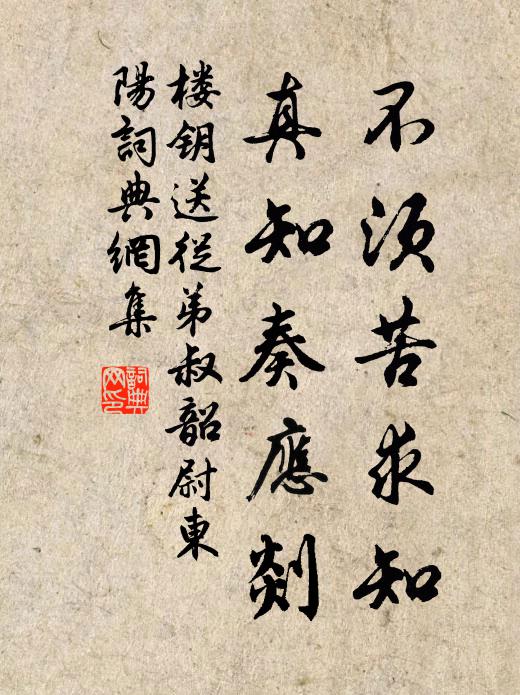 不須苦求知
真知奏應剡
楼钥送従弟叔韶尉東
陽詞典網集
詞典
网印